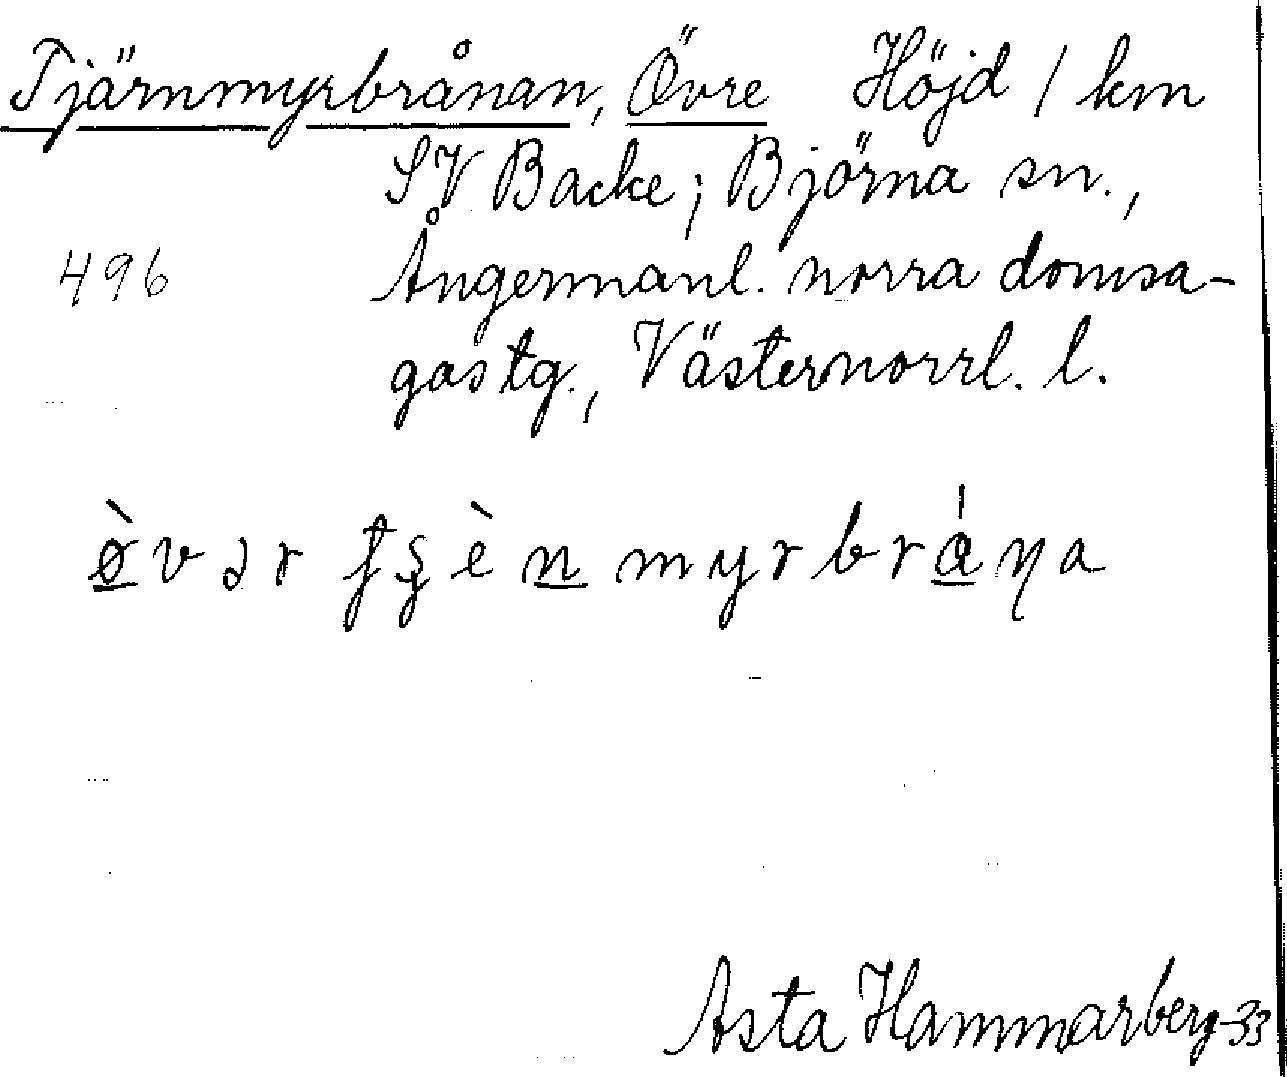 Tjärnmyrbrånan, Övre Höjd 1 km
SV Backe; Björna sn.,
496 Ångermanl. norra domsa-
gas tg., Västernorrl. l.
ø̀vər tʂèn myrbráŋa
Asta Hammarberg-33